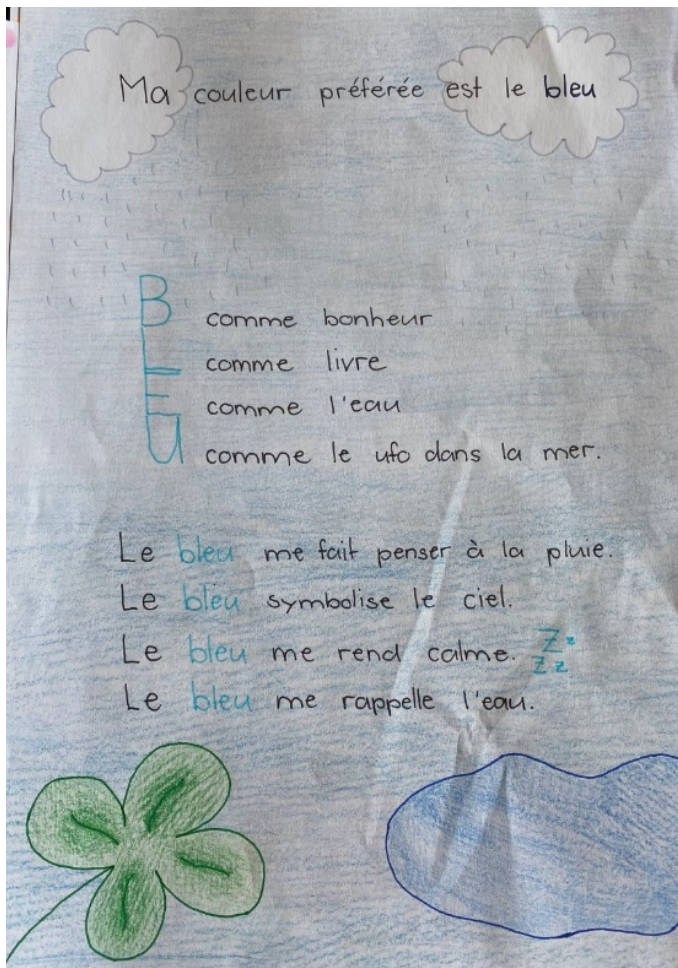 Ma couleur préférée est le bleu
B comme bonheur
L comme livre
E comme l'eau
U comme le ufo dans la mer.
Le bleu me fait penser à la pluie.
Le bleu symbolise le ciel.
Le bleu me rend calme. Zz
Z.z
Le bleu me rappelle l'eau.